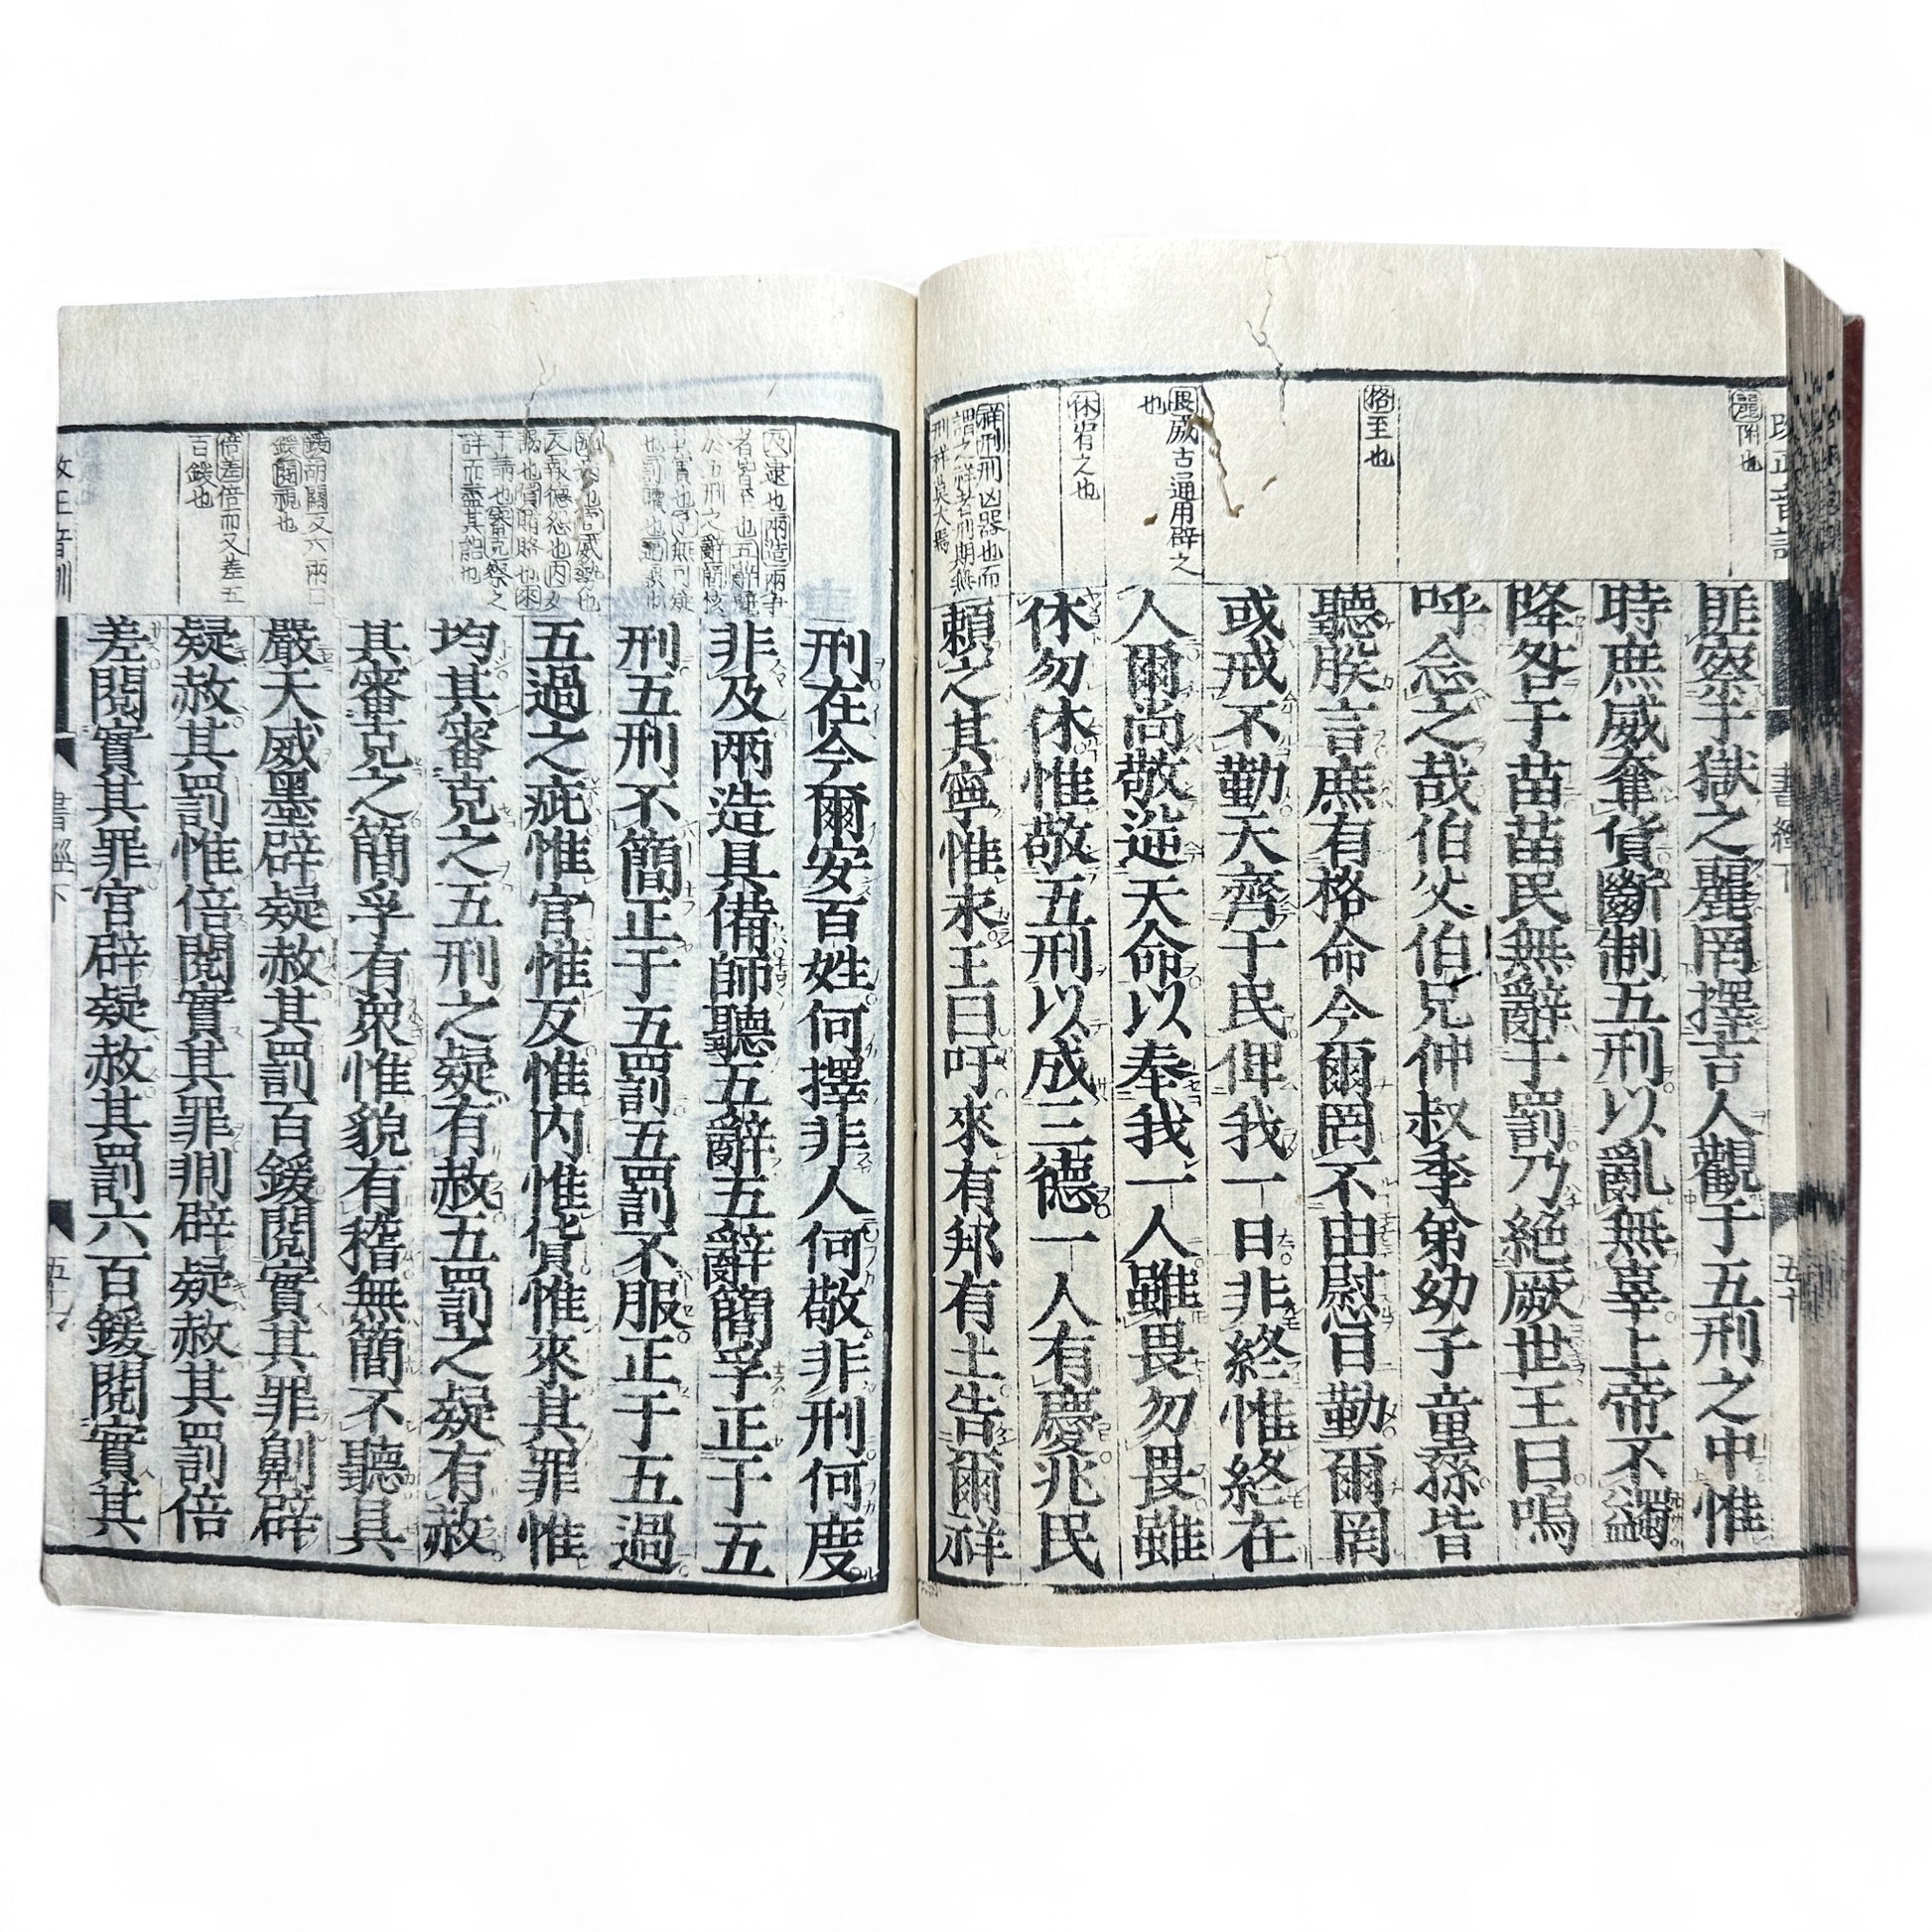 麗附也
格至也
畏威古通用辟之
也
休宥之也
祥刑刑凶器也而
謂之祥者刑期無
刑祥莫大焉
匪察于獄之麗罔擇吉人觀于五刑之中惟
時庶威奪貨斷制五刑以亂無辜上帝不蠲
降咎于苗苗民無辭于罰乃絶厥世王曰嗚
呼念之哉伯父伯兄仲叔季弟幼子童孫皆
聽朕言庶有格命今爾罔不由慰日勤爾罔
或戒不勤天齊于民俾我一日非終惟終在
人爾尚敬逆天命以奉我一人雖畏勿畏雖
休勿休惟敬五刑以成三德一人有慶兆民
賴之其寧惟永王曰吁來有邦有土告爾祥
書經下
五十
逮也兩造兩爭
者皆至也五辭麗
於五刑之辭簡核
其實也孚無可疑
也罰贖也過誤也
官威勢也
反報德怨也内女
謁也貨賄賂也來
干請也審克察之
詳而盡其能也
鍰胡關反六兩曰
鍰閱視也
倍差倍而又差五
百鍰也
刑在今爾安百姓何擇非人何敬非刑何度
非及兩造具備師聽五辭五辭簡孚正于五
刑五刑不簡正于五罰五罰不服正于五過
五過之疵惟官惟反惟内惟貨惟來其罪惟
均其審克之五刑之疑有赦五罰之疑有赦
其審克之簡孚有衆惟貌有稽無簡不聽具
嚴天威墨辟疑赦其罰百鍰閱實其罪劓辟
疑赦其罰惟倍閱實其罪剕辟疑赦其罰倍
差閱實其罪宮辟疑赦其罰六百鍰閱實其
書經下